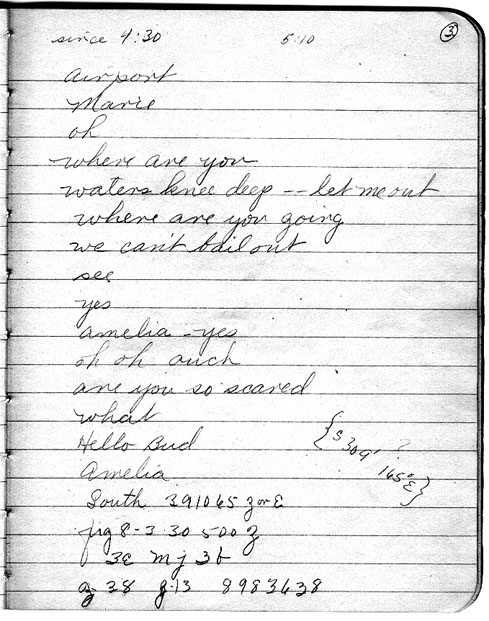 since 4:30 5:10 3
airport
Marie
oh
where are you
waters knee deep -- let me out
where are you going
we can't bail out
see
yes
amelia - yes
oh oh ouch
are you so scared
what
Hello Bud {S 309' ?
Amelia 165° E}
South 391065 z or E
fig 8 - 3. 30 500 z
3E MJ 3b
z 38 z 13 8983638